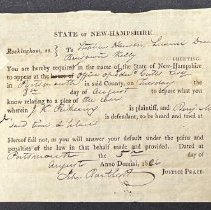 STATE OF NEW-HAMPSHIRE.
Rockingham, ss. To Stephen
Benjamin Kelly GREETING
You are hereby required in the name of the State of New-Hampshire
to appear at the Office of
in Portsmouth in said County, on Tuesday the
day of August to depose what you
know relating to a plea of the case
wherein is plaintiff, and
is defendant, to be heard and tried at
said time & place
Hereof fail not, as you will answer your default under the pains and
penalties of the law in that behalf made and provided. Dated at
Portsmouth the 5th day of
August Anno Domini, 18
JUSTICE PEACE.